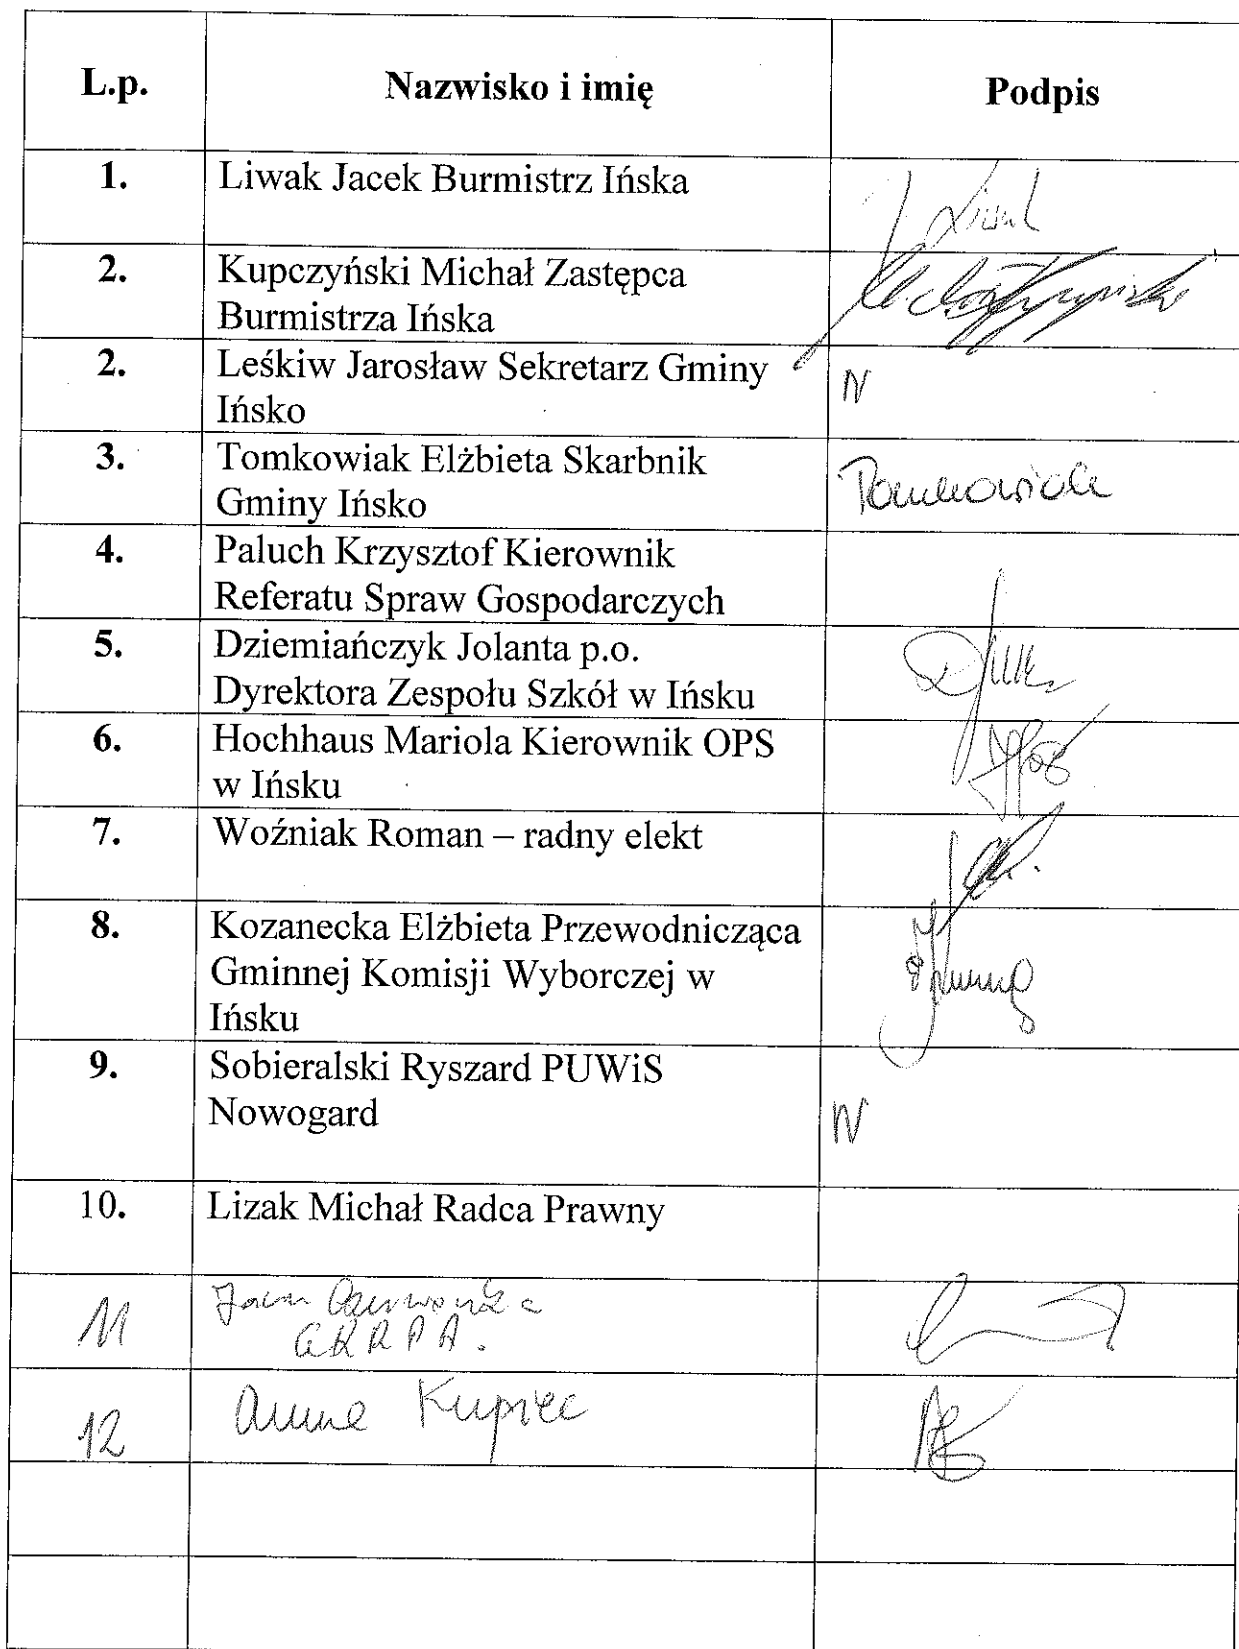 L.p. Nazwisko i imię Podpis
1. Liwak Jacek Burmistrz Ińska
2. Kupczyński Michał Zastępca
Burmistrza Ińska
2. Leśkiw Jarosław Sekretarz Gminy
Ińsko
N
3. Tomkowiak Elżbieta Skarbnik
Gminy Ińsko
Tomkowiak
4. Paluch Krzysztof Kierownik
Referatu Spraw Gospodarczych
5. Dziemiańczyk Jolanta p.o.
Dyrektora Zespołu Szkół w Ińsku
6. Hochhaus Mariola Kierownik OPS
w Ińsku
7. Woźniak Roman – radny elekt
8. Kozanecka Elżbieta Przewodnicząca
Gminnej Komisji Wyborczej w
Ińsku
9. Sobieralski Ryszard PUWiS
Nowogard
N
10. Lizak Michał Radca Prawny
11
GKRPA.
12 Anna Kupiec